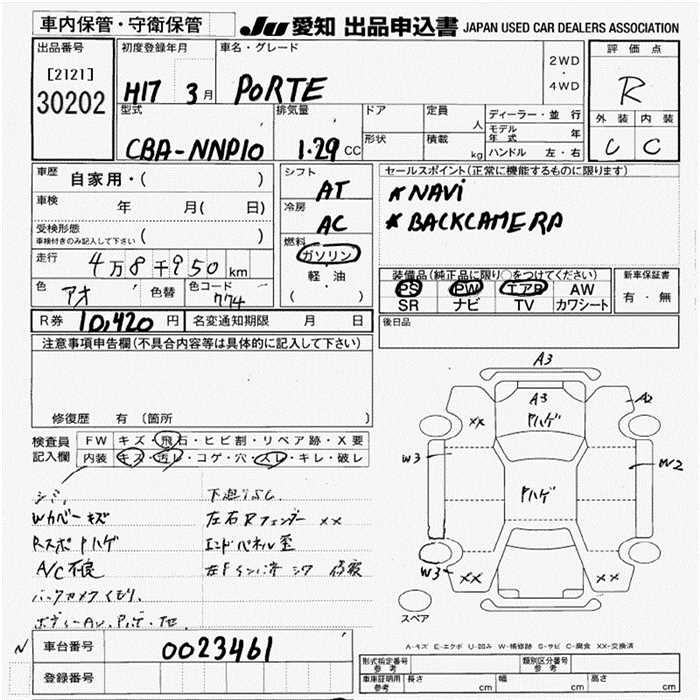 車内保管・守衛保管
JU 愛知 出品申込書 JAPAN USED CAR DEALERS ASSOCIATION
出品番号
[2121]
30202
初度登録年月
H17 3月
車名・グレード
PORTE
2WD
・
4WD
評価点
R
外装 内装
C C
型式
CBA-NNP10
排気量
1.29 CC
ドア
形状
定員 人
積載 kg
ディーラー・並行
モデル年式 年
ハンドル 左・右
車歴 自家用・( )
車検 年 月( 日)
受検形態
車検付きのみ記入して下さい ( )
走行 4万8千950km
色 アオ 色替 色コード 774
シフト AT
冷房 AC
燃料 ガソリン
軽・油
( )
セールスポイント(正常に機能するものに限ります)
* NAVi
* BACKCAMERA
装備品(純正品に限り○をつけてください)
PS PW エアB AW
SR ナビ TV カワシート
新車保証書
有・無
R券 10,420円 名変通知期限 月 日
後日品
注意事項申告欄(不具合内容等は具体的に記入して下さい)
修復歴 有 〔箇所 〕
検査員記入欄
FW キズ・飛石・ヒビ割・リペア跡・X要
内装 キズ・汚レ・コゲ・穴・スレ・キレ・破レ
シミ
Wカバーキズ
RスポPハゲ
A/C不良
バックカメラくもり
下廻りサビ
左右Rフェンダー xx
エンドパネル歪
A3
A3
Pハゲ
A2
xx
W3
W2
Pハゲ
W3
xx
xx
スペア
A-キズ E-エクボ U-凹み W-補修跡 S-サビ C-腐食 XX-交換済
車台番号 0023461
登録番号
形式指定番号 参考
類別区分番号 参考
車庫証明用 参考 長さ cm 幅 cm 高さ cm